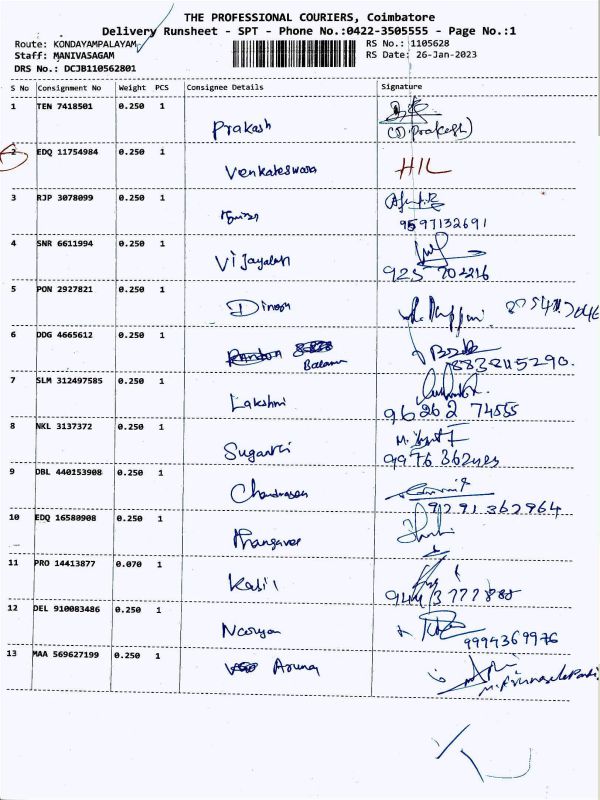 THE PROFESSIONAL COURIERS, Coimbatore
Delivery Runsheet - SPT - Phone No.:0422-3505555 - Page No.:1
Route: KONDAYAMPALAYAM
RS No.: 1105628
Staff: MANIVASAGAM
RS Date: 26-Jan-2023
DRS No.: DCJB110562801
S No Consignment No Weight PCS Consignee Details Signature
1 TEN 7418501 0.250 1 Prakash
(D. Prakash)
2 EDQ 11754984 0.250 1 Venkateswara HIL
3 RJP 3078099 0.250 1
9597132691
4 SNR 6611994 0.250 1 Vijayalah
5 PON 2927821 0.250 1 Dinesh
6 DDG 4665612 0.250 1
8832115290.
7 SLM 312497585 0.250 1 Lakshmi
96262 74555
8 NKL 3137372 0.250 1 Suganthi
9 DBL 440153908 0.250 1 Chandrasen
9129 1 362964
10 EDQ 16580908 0.250 1 Thangavel
11 PRO 14413877 0.070 1 Kabil
12 DEL 910083486 0.250 1 Narayan
9994369976
13 MAA 569627199 0.250 1 Aruna